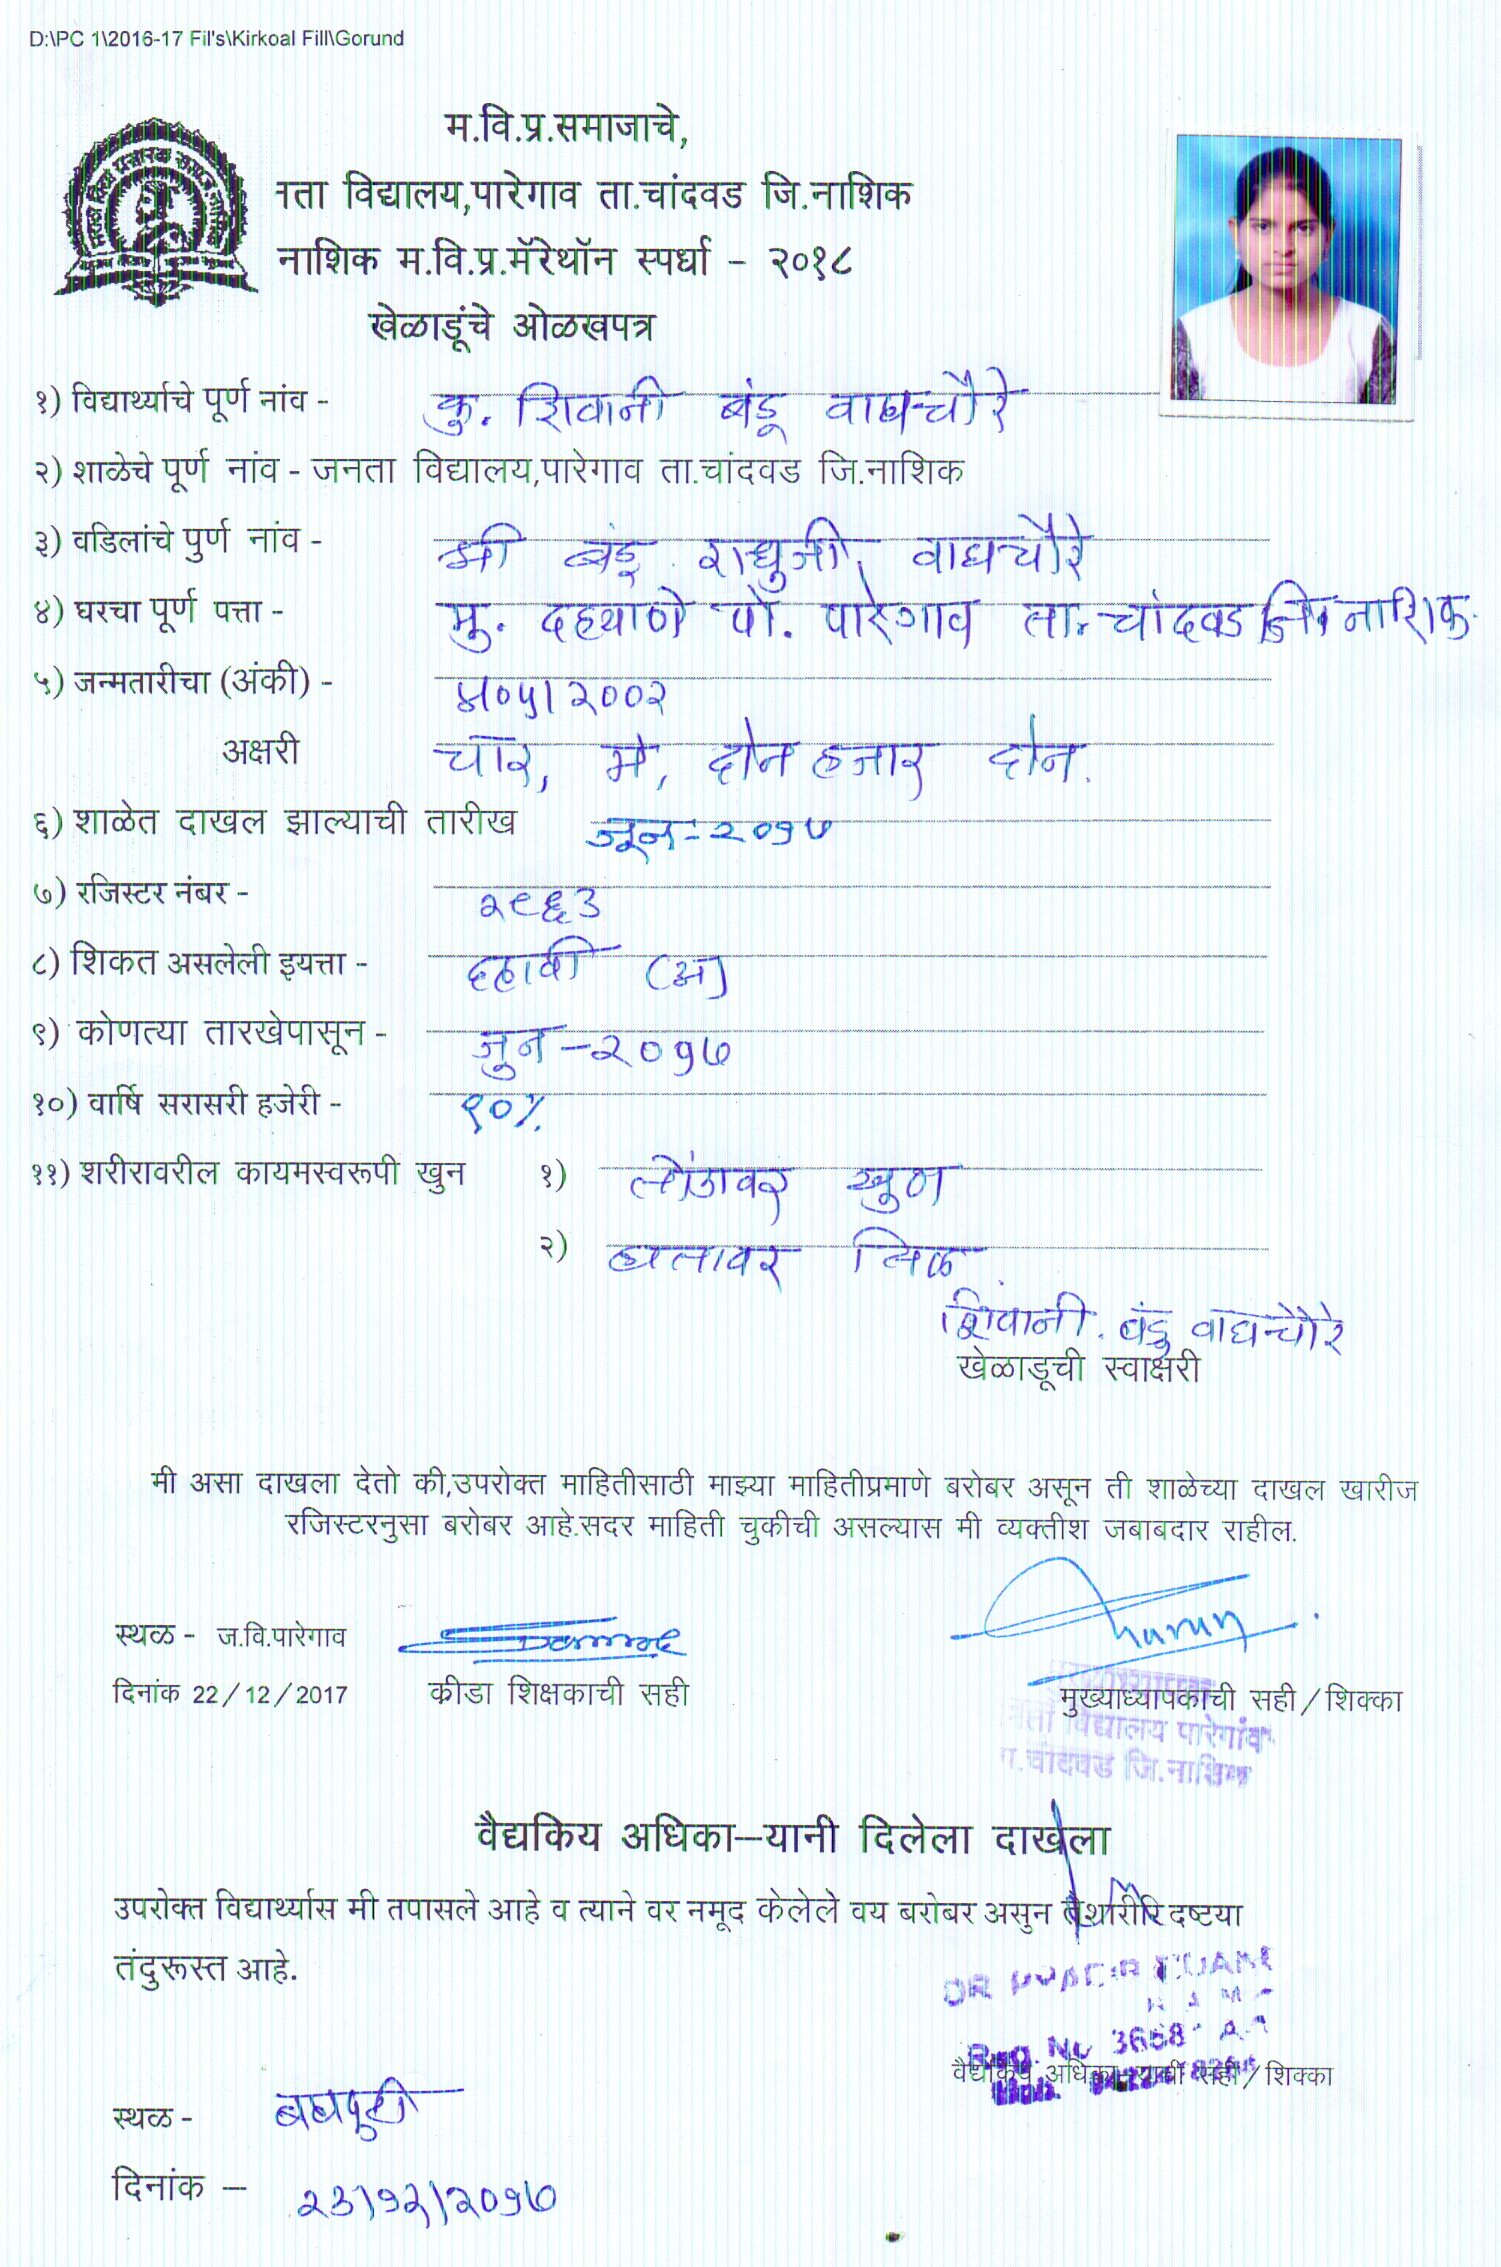 D:\PC 1\2016-17 Fil's\Kirkoal Fill\Gorund
म.वि.प्र.समाजाचे,
नता विद्यालय,पारेगाव ता.चांदवड जि.नाशिक
नाशिक म.वि.प्र.मॅरेथॉन स्पर्धा - २०१८
खेळाडूंचे ओळखपत्र
१) विद्यार्थ्याचे पूर्ण नांव - कु. शिवानी बंडू वाघचौरे
२) शाळेचे पूर्ण नांव - जनता विद्यालय,पारेगाव ता.चांदवड जि.नाशिक
३) वडिलांचे पुर्ण नांव - श्री बंडू राघुजी वाघचौरे
४) घरचा पूर्ण पत्ता - मु. दह्याणे पो. पारेगाव ता. चांदवड जि. नाशिक.
५) जन्मतारीचा (अंकी) - ४।०५।२००२
अक्षरी चार, मे, दोन हजार दोन.
६) शाळेत दाखल झाल्याची तारीख जून - २०१७
७) रजिस्टर नंबर - २९६३
८) शिकत असलेली इयत्ता - दहावी (अ)
९) कोणत्या तारखेपासून - जुन - २०१७
१०) वार्षि सरासरी हजेरी - ९०%
११) शरीरावरील कायमस्वरूपी खुन १) तोंडावर खुण
२) हातावर तिळ
शिवानी. बंडु वाघचौरे
खेळाडूची स्वाक्षरी
मी असा दाखला देतो की,उपरोक्त माहितीसाठी माझ्या माहितीप्रमाणे बरोबर असून ती शाळेच्या दाखल खारीज
रजिस्टरनुसा बरोबर आहे.सदर माहिती चुकीची असल्यास मी व्यक्तीश जबाबदार राहील.
स्थळ - ज.वि.पारेगाव
दिनांक 22/12/2017 कीडा शिक्षकाची सही मुख्याध्यापकाची सही/शिक्का
विद्यालय पारेगांव
चांदवड जि.नाशिक
वैद्यकिय अधिका---यानी दिलेला दाखला
उपरोक्त विद्यार्थ्यास मी तपासले आहे व त्याने वर नमूद केलेले वय बरोबर असुन ते शारीरि दष्टया
तंदुरूस्त आहे.
DR
Reg. No 3658
वैद्यकिय अधिका---याची सही/शिक्का
स्थळ -
दिनांक -- २३।१२।२०१७